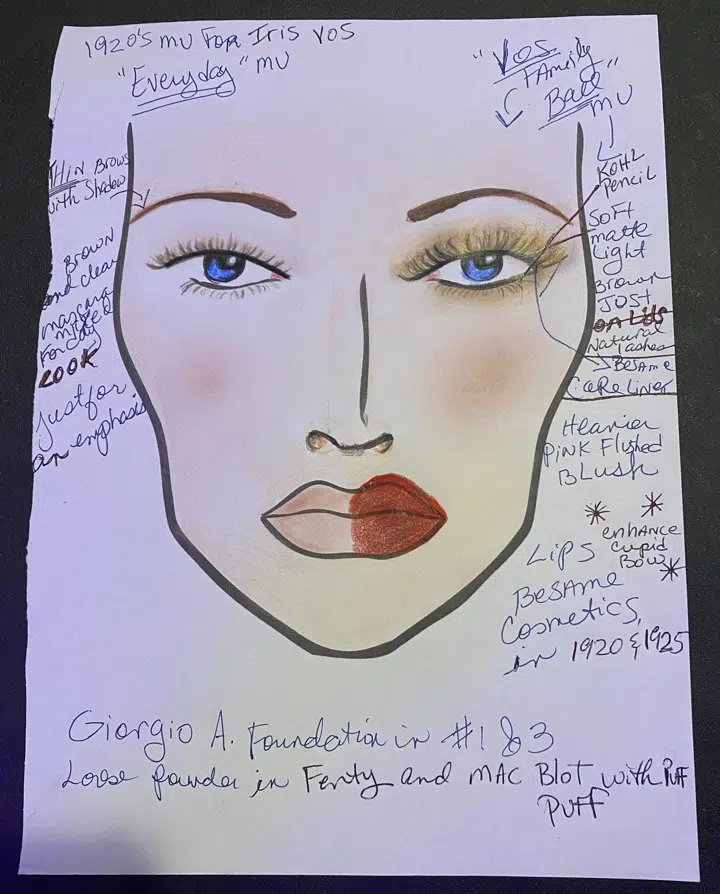 1920's MU FOR Iris VOS
"Everyday" MU
"VOS
FAmily
Ball"
MU
THIN Brows
with Shadow
BROWN
and clear
mascara
mixed
For Day
LOOK
just for
an emphasis
KOHL
Pencil
SOFT
matte
Light
Brown
JUST
on Lids
Natural
Lashes
BESAme
CaKe Liner
Heavier
PiNK Flushed
BLush
enhance
Cupid
Bow
Lips
BESAME
Cosmetics,
in 1920 & 1925
Giorgio A. Foundation in #1 & 3
Loose powder in Fenty and MAC Blot with PUFF
PUFF